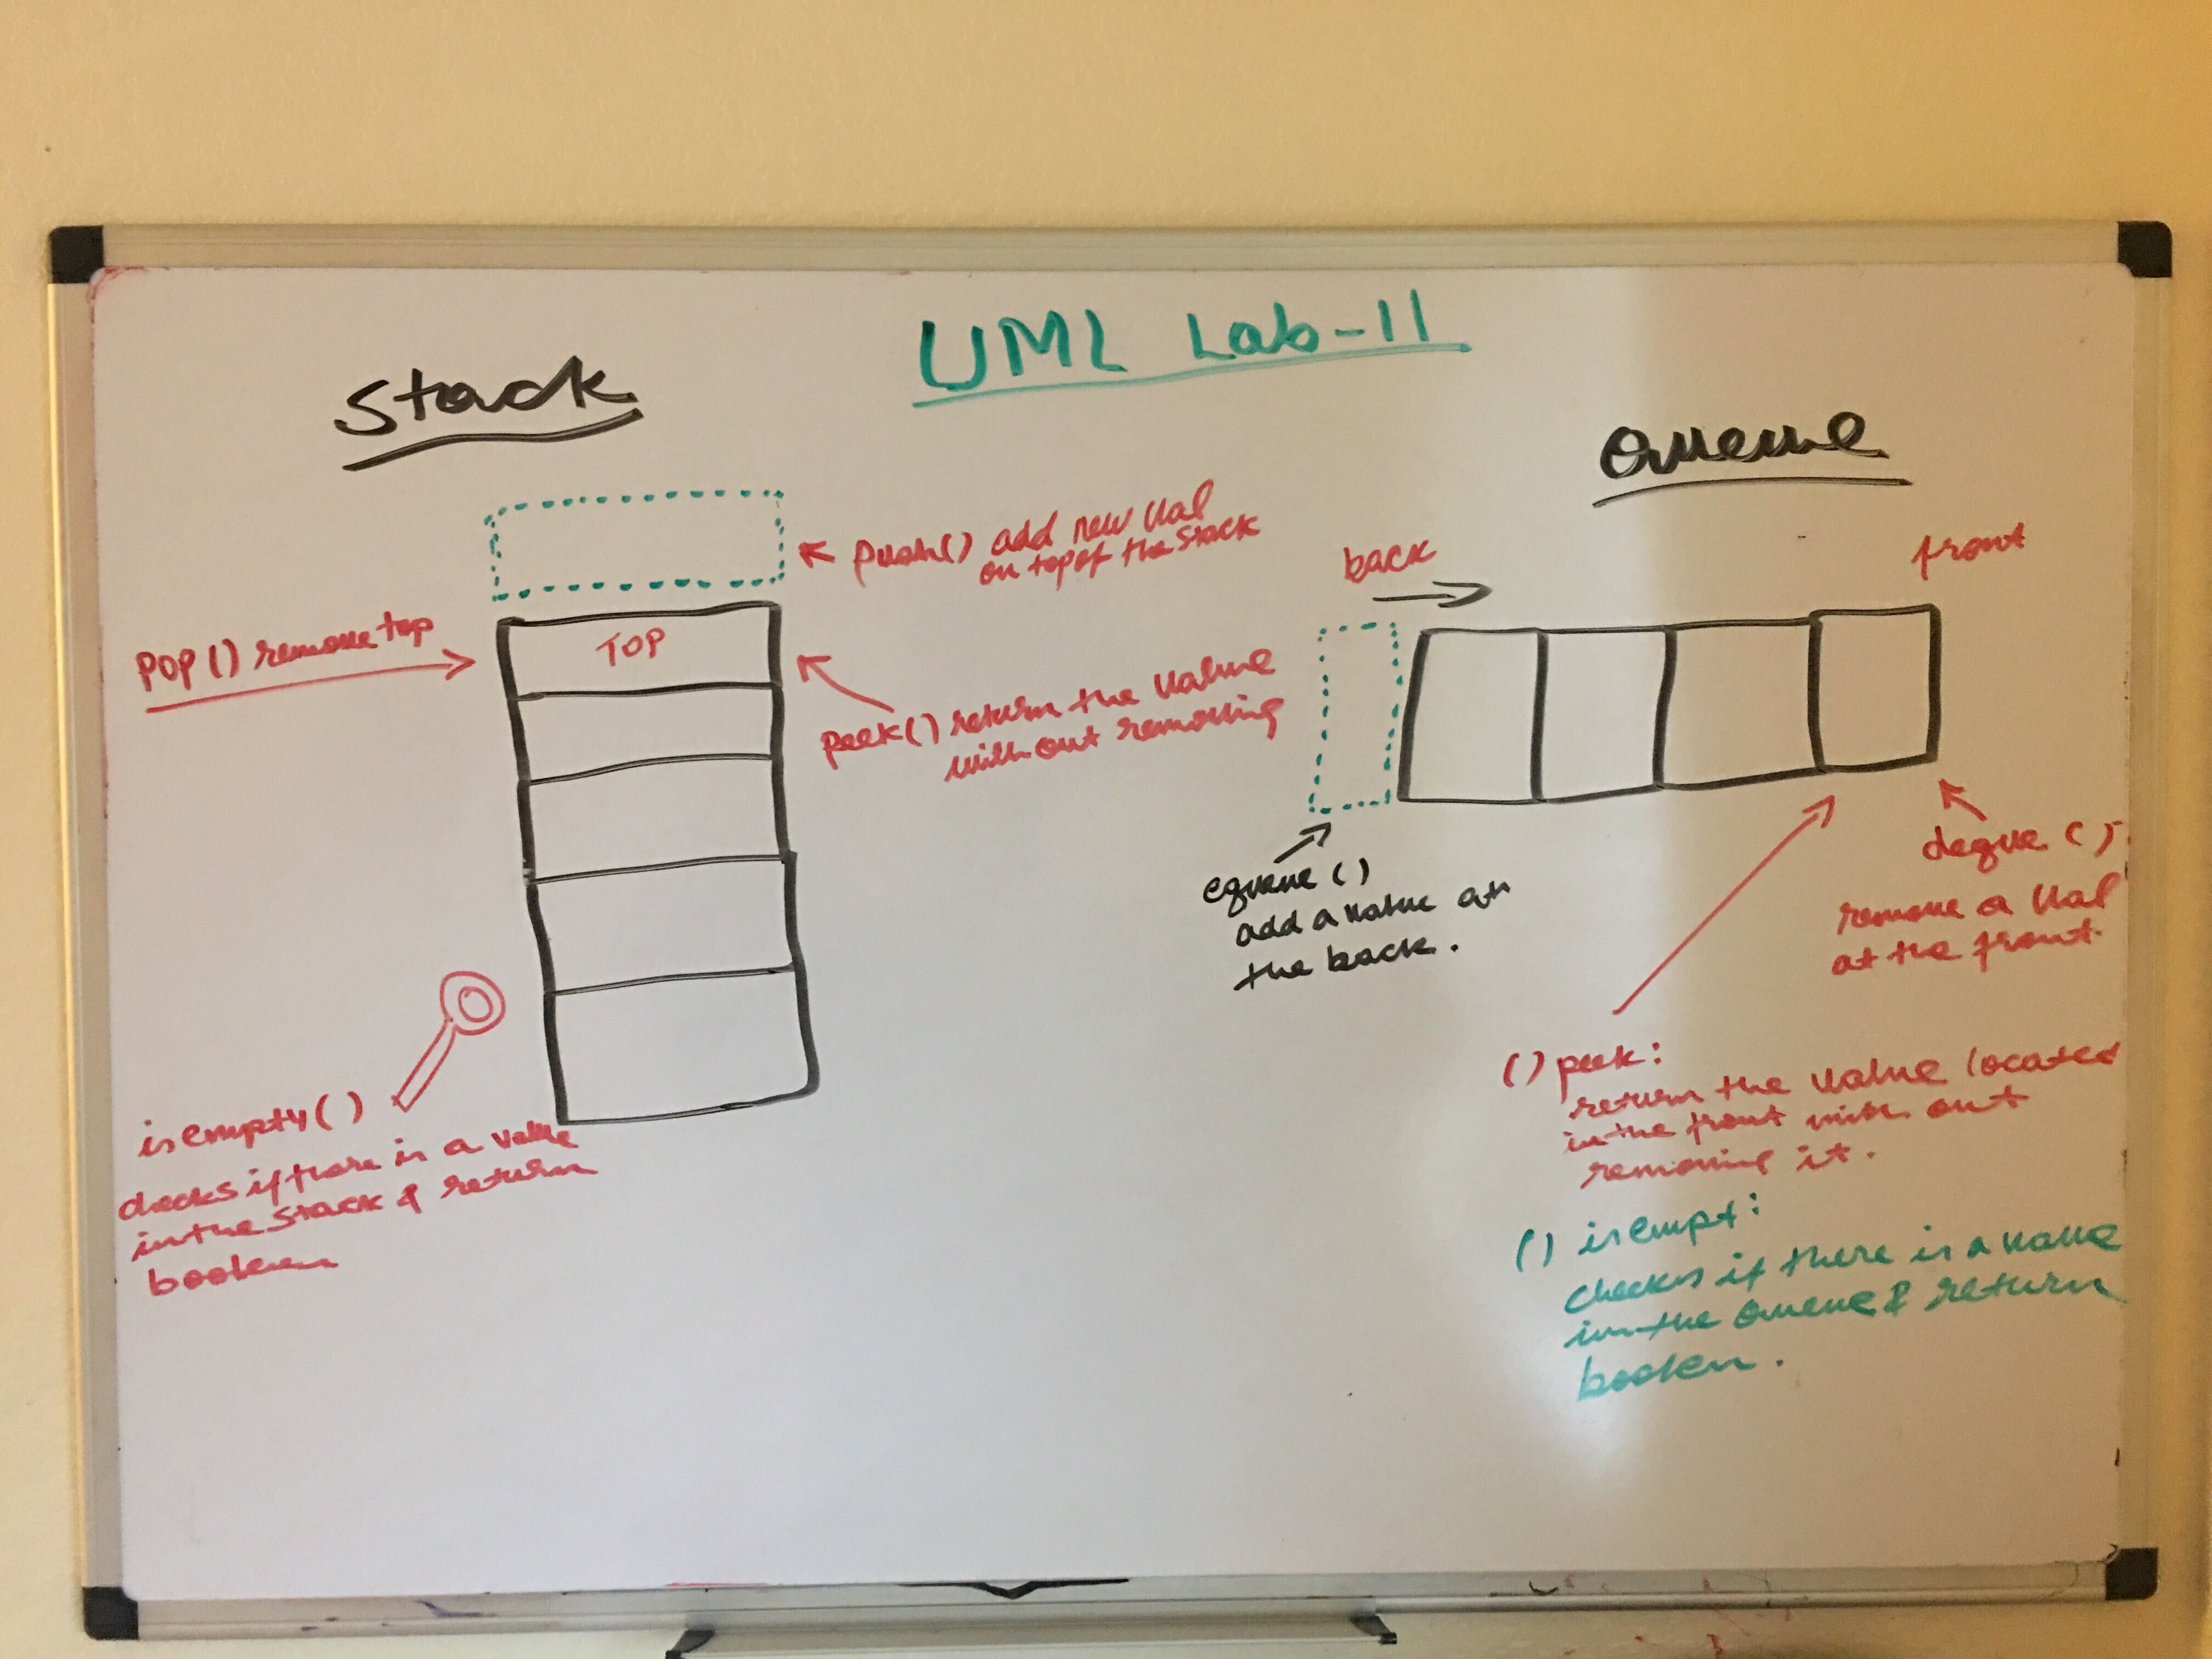 UML Lab-11
Stack
push() add new val
on top of the stack
POP() remove top
TOP
peek() return the value
with out removing
isempty()
checks if there is a value
in the stack & return
boolean
Queue
back
front
equeue()
add a value at
the back.
deque()
remove a val
at the front.
() peek:
return the value located
in the front with out
removing it.
() isempt:
checks if there is a value
in the Queue & return
boolen.